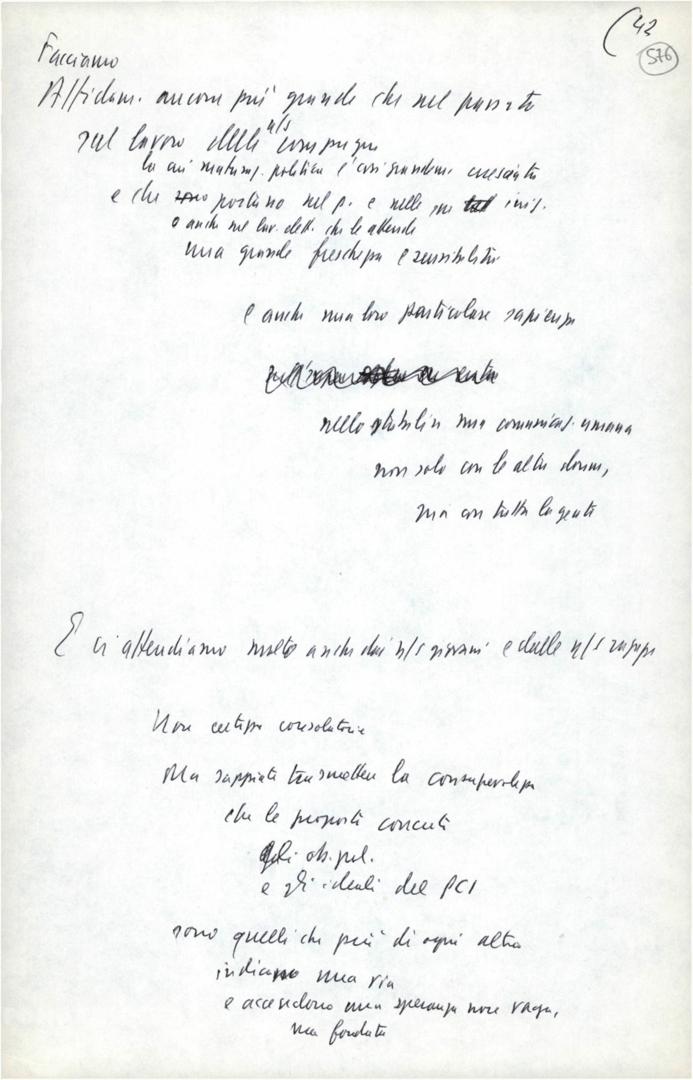 (42
576
Facciamo
Affidam. ancora più grande che nel passato
sul lavoro delle n/s compagne
la cui maturaz. politica è così grandem. cresciuta
e che portano nel p. e nelle iniz.
o anche nel lav. elett. che le attende
una grande freschezza e sensibilità
e anche una loro particolare sapienza
nello stabilire una comunicaz. umana
non solo con le altre donne,
ma con tutta la gente
E ci attendiamo molto anche dai n/s giovani e dalle n/s ragazze
Non certezza consolatoria
Ma sappiate trasmettere la consapevolezza
che le proposte concrete
gli ob. pol.
e gli ideali del PCI
sono quelli che più di ogni altro
indicano una via
e accendono una speranza non vaga,
ma fondata